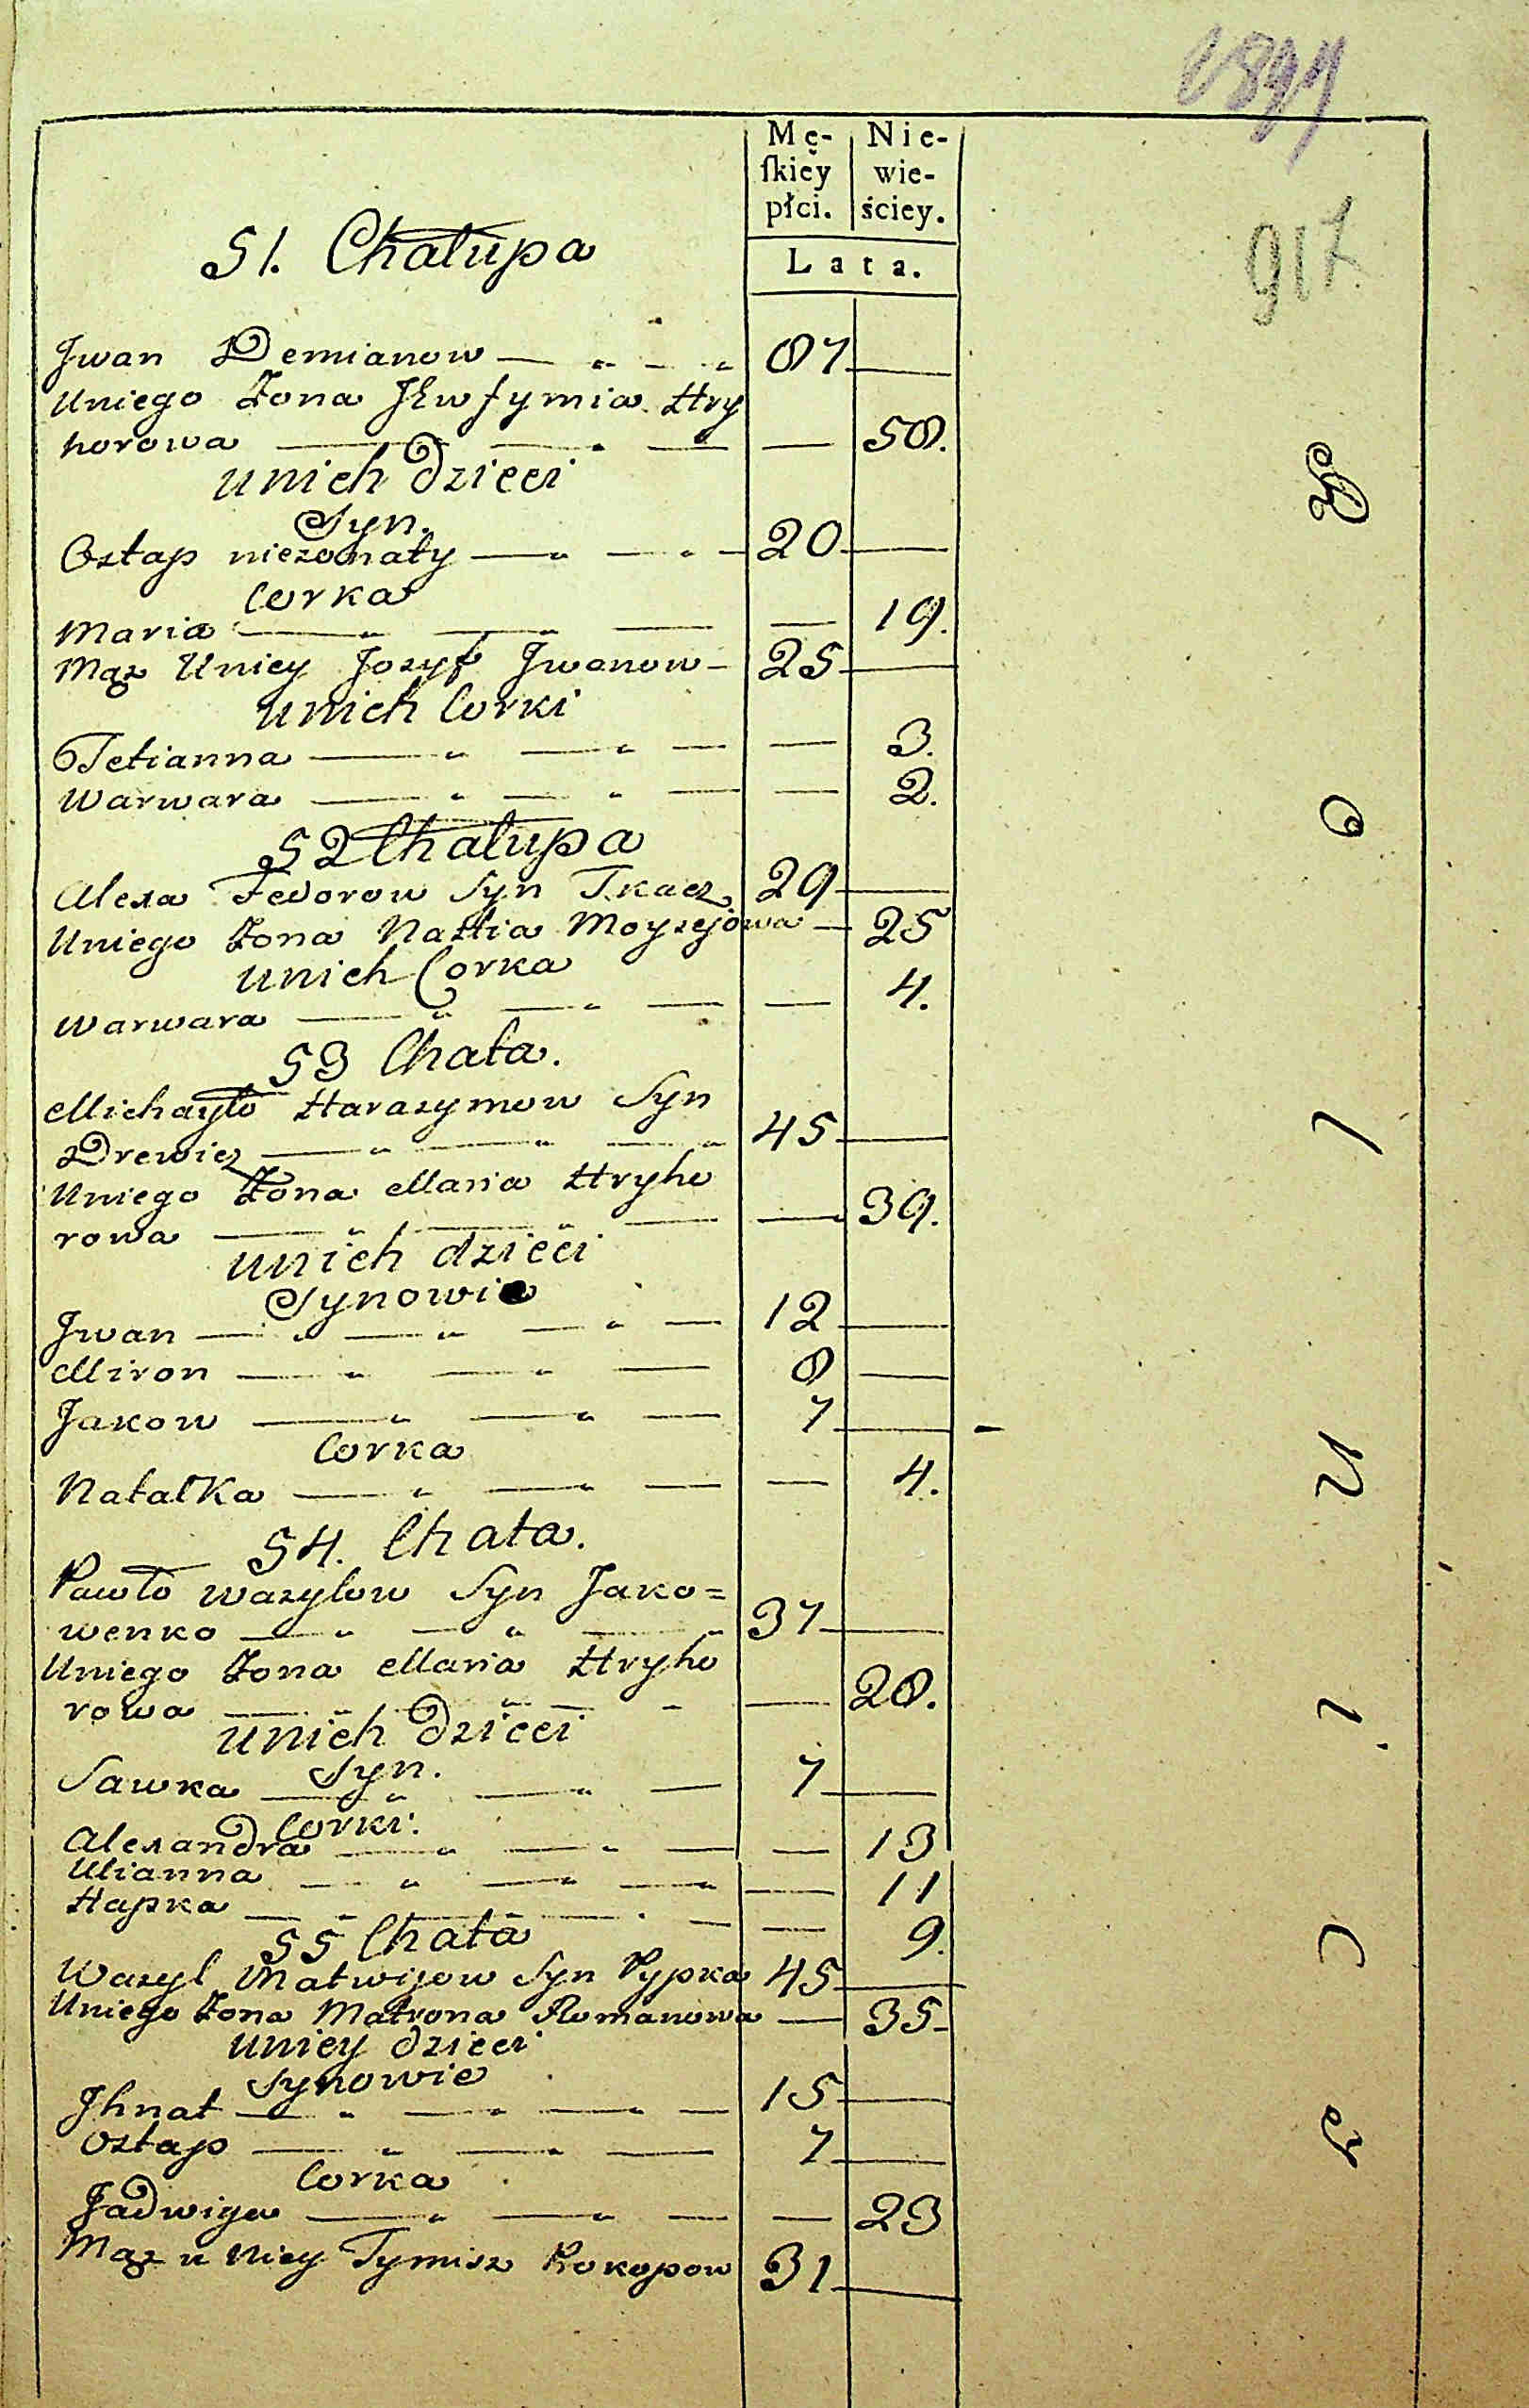 Mę-
skiey
płci.
Nie-
wie-
ściey.
Lata.
917.
51. Chałupa
Jwan Demianow — „ — „ 87 —
Uniego Żona Jewfymia Hry
horowa — — „ — — 58.
unich Dzieci
Syn.
Ostap nieżonaty — „ — „ — 20 —
Corka
Maria — „ — „ — — 19.
Mąż Uniey Jozyf Jwanow — 25 —
unich Corki
Tetianna — „ — „ — — 3.
Warwara — „ — „ — — 2.
52 Chałupa
Alexa Fedorow Syn Tkacz 29 —
Uniego Żona Nastia Moyzejowa — 25
unich Corka
Warwara — „ — „ — — 4.
53 Chata.
Michayło Harazymow Syn
Drewicz — „ — „ — „ 45 —
Uniego Żona Maria Hryho
rowa — „ — „ — — 39.
unich dzieci
Synowie
Jwan — „ — „ — „ — 12 —
Miron — „ — „ — 8 —
Jakow — „ — „ — 7 —
Corka
Natalka — „ — „ — — 4.
54. Chata.
Pawło Wazylow Syn Jako=
wenko — „ — „ — „ 37 —
Uniego Żona Maria Hryho
rowa — „ — „ — - — 28.
unich Dzieci
Syn.
Sawka — „ — „ — 7 —
Corki.
Alexandra — „ — „ — — 13
Ulianna — „ — „ — „ — 11
Hapka — „ — „ — . — — 9.
55 Chata
Wazyl Matwijow Syn Pypka 45 —
Uniego Żona Matrona Romanowa — 35-
uniey dzieci
Synowie
Jhnat — „ — „ — „ — 15 —
Ostap — „ — „ — 7 —
Corka
Jadwiga — „ — „ — — 23
Mąż u Niey Tymisz Prokopow 31 —
Rolnicy